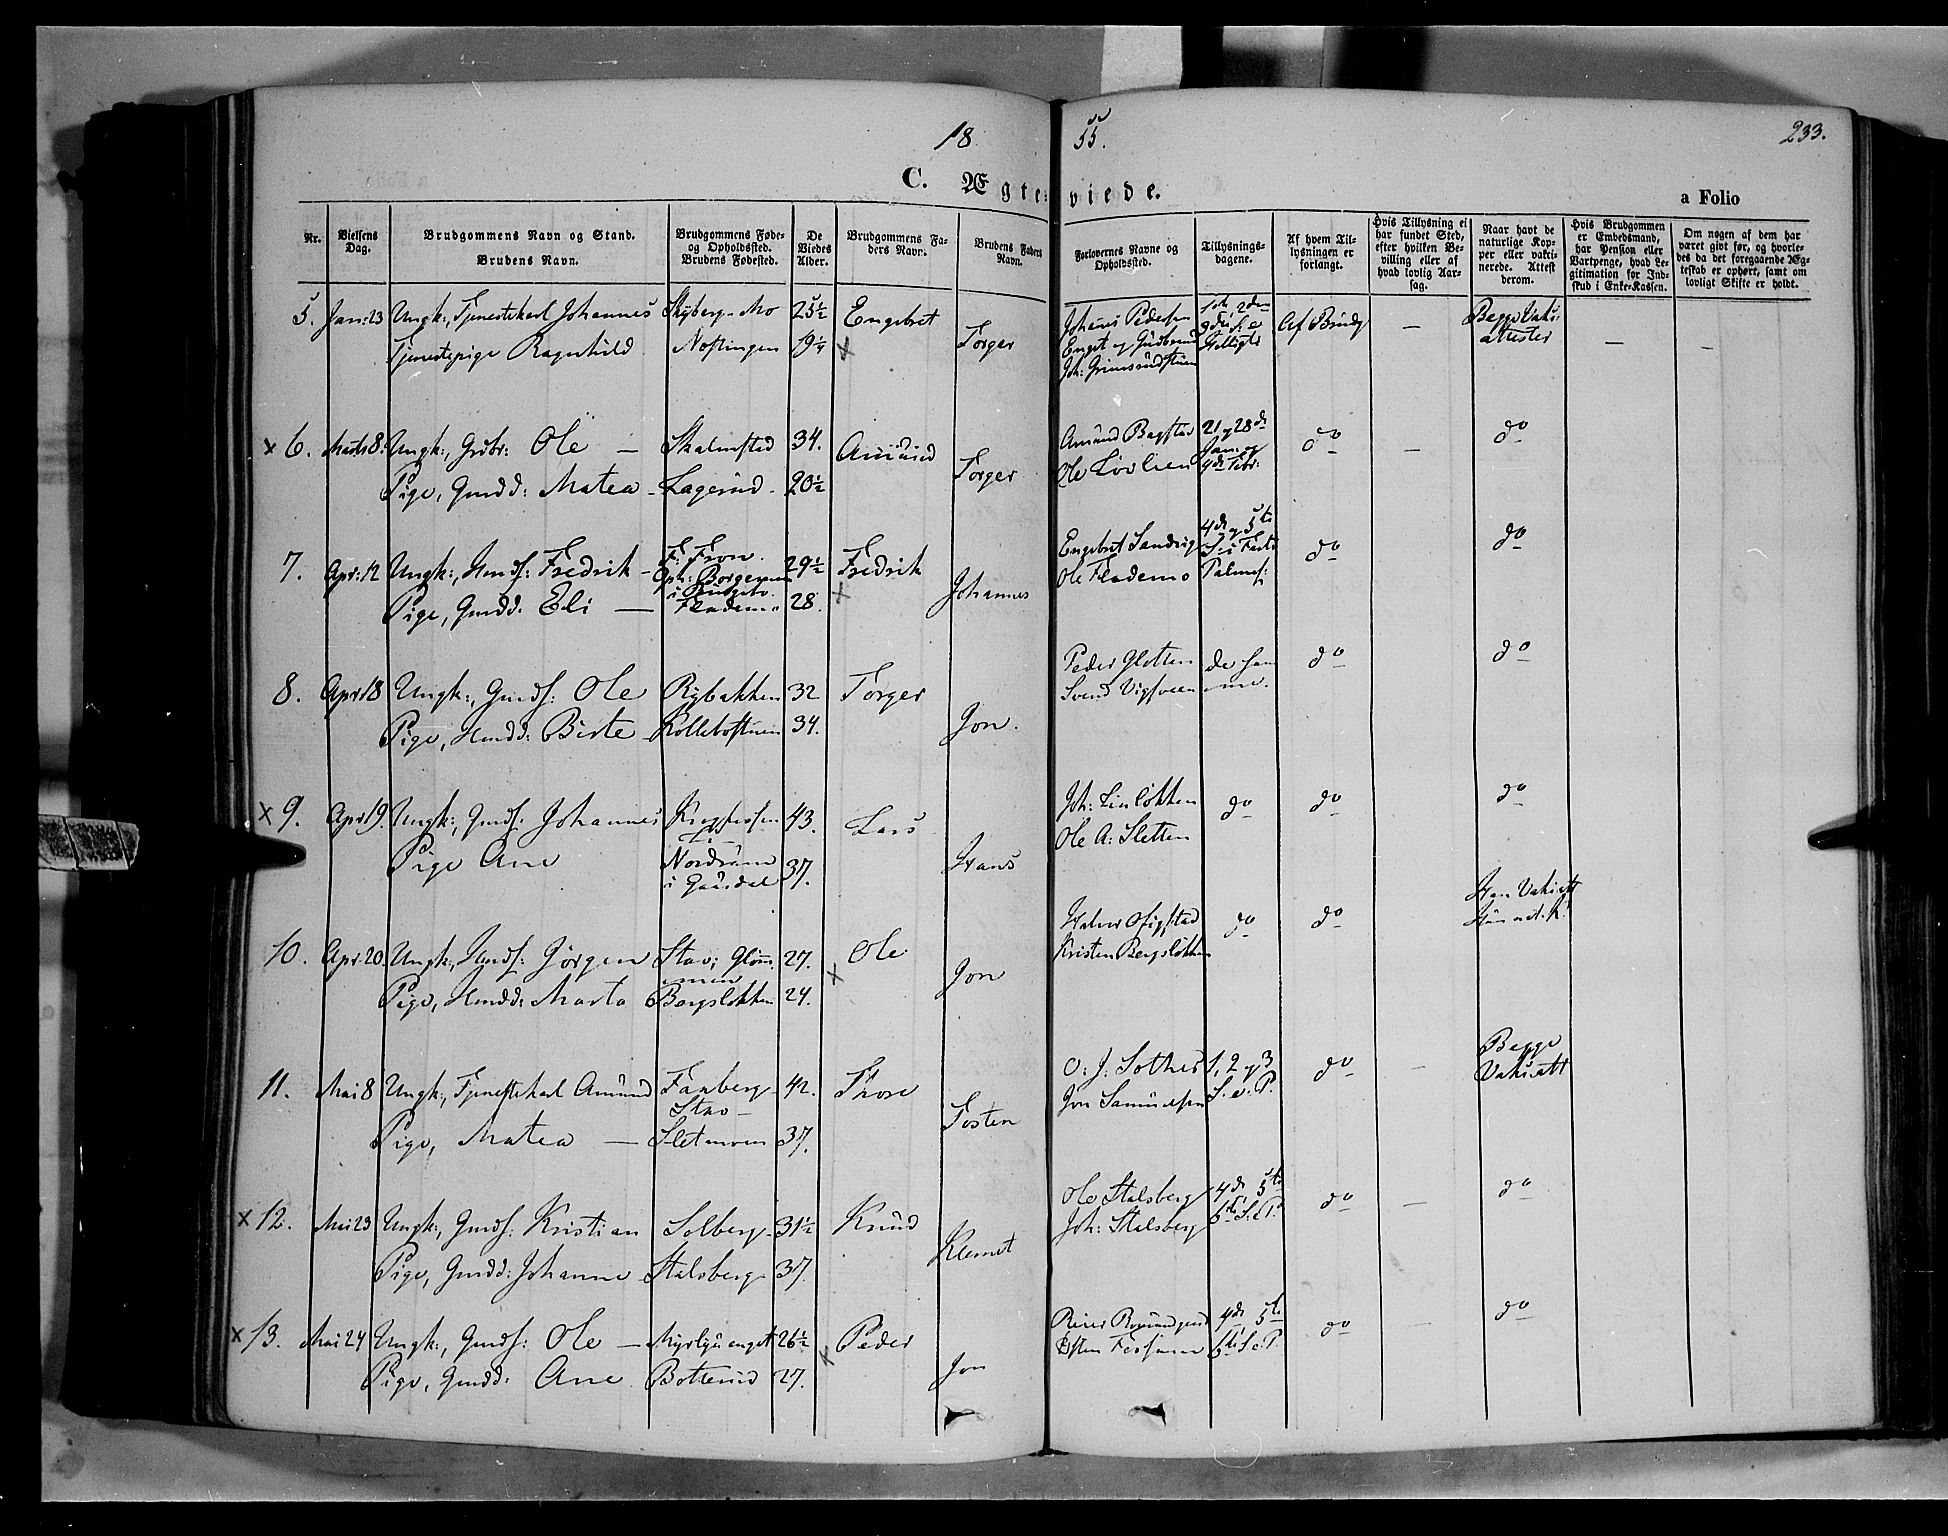 18 55. 233.
C. Ægteviede. a Folio
Nr.
Vielsens Dag.
Brudgommens Navn og Stand.
Brudens Navn.
Brudgommens Føde- og Opholdssted.
Brudens Fødested.
De Viedes Alder.
Brudgommens Faders Navn.
Brudens Faders Navn.
Forlovernes Navne og Opholdssted.
Tillysnings-dagene.
Af hvem Tillysningen er forlangt.
Hvis Tillysning ei har fundet Sted, efter hvilken Bevilling eller af hvad lovlig Aarsag.
Naar havt de naturlige Kopper eller vaktinerede. Attest derom.
Hvis Brudgommen er Embedsmand, har Pension eller Vartpenge, hvad Legitimation for Indskud i Enke-Kassen.
Om nogen af dem har været givt før, og hvorledes da det foregaaende Ægteskab er ophørt, samt om lovligt Skifte er holdt.
5. Jan: 23 Ungk:, Tjenestekarl Johannes Skyberg - Mo 25½ Engebret Johanes Pedersen Af Brudg — Begge Vaks:
Tjenestepige Ragnhild 19¼ Torger Enget og Gudbrand attester — —
Joh: Grimsrudstuen
x 6. Marts 8. Ungk:, Grdbr: Ole — Skalmstad 34. Amund Amund Bagstad 21 g 28de do — do
Pige, Gmdd: Matea - Lagerud - 20½ Torger Ole Lovlien Jan: og 4de Febr:
7. Apr: 12 Ungk:, Hmds: Fredrik - F: Fron. 29½ Fredrik Engebret Sandvig 4de g 5te do do
Oph: Borgemoen S: i Faste
Pige, Gmdd: Eli — Flademo 28. Johannes Ole Flademo Palmes:
8. Apr 18 Ungk:, Gmds: Ole Rybakken 32 Torger Peder Sletten de sam do do
Pige, Hmdd: Birte - Kollebostuen 34. Jon. Svend Vigsveen me.
x 9. Apr 19. Ungk:, Gmds: Johannes 43. Lars Joh: Linløkken do do do
Pige Ane Nordrum i Gausdal 37. Hans Ole A: Sletten
10. Apr: 20. Ungk:, Hmds: Jørgen Stav; Glømmen 27. Ole do do Han Vaksatt
Pige, Hmdd: Marta Bergsløkken 24. Jon Kristen Bergsløkken
11. Mai 8 Ungk:, Tjenestekarl Amund Faaberg - Stav - 42. Thore O: J: 1, 2 g 3 do - Begge Vaksatt
Pige, Matea — Sletmoen 37. Tosten Jon Samuelsen S. e. P.
x 12. Mai 23 Ungk:, Gmds: Kristian Solberg - 31½ Knud Ole Stalsberg 4de 5te do — do
Pige, Gmdd: Johanne - Stalsberg 37. Klemet Joh: Stalsberg 6te S. e. P.
x 13. Mai 24 Ungk:, Gmds: Ole — 26½ Peder Reier 4de 5te do — do
Pige, Gmdd: Ane Botterud 27. Jon 6te S. e. P.